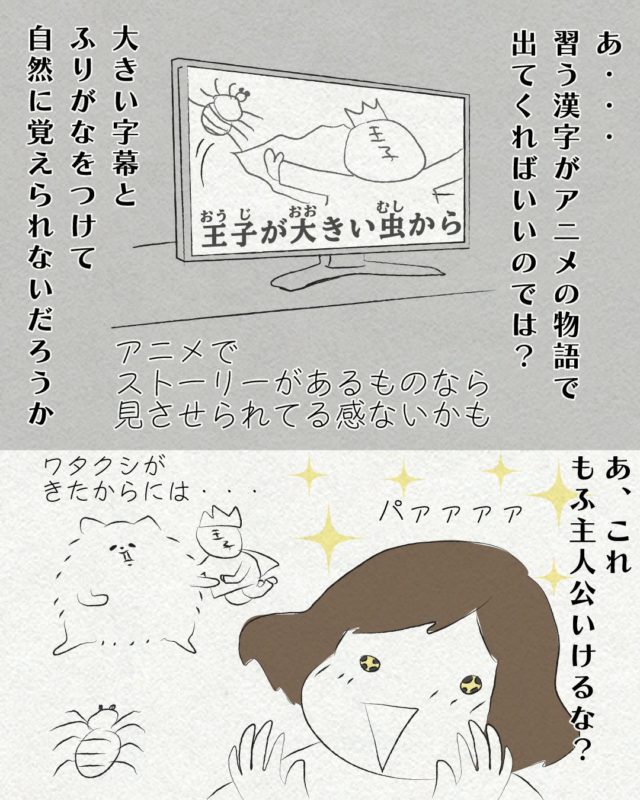 あ・・・
習う漢字がアニメの物語で
出てくればいいのでは？
王子
おうじ おお むし
王子が大きい虫から
大きい字幕と
ふりがなをつけて
自然に覚えられないだろうか
アニメで
ストーリーがあるものなら
見させられてる感ないかも
あ、これ
もふ主人公いけるな？
パァァァァ
ワタクシが
きたからには・・・
王子